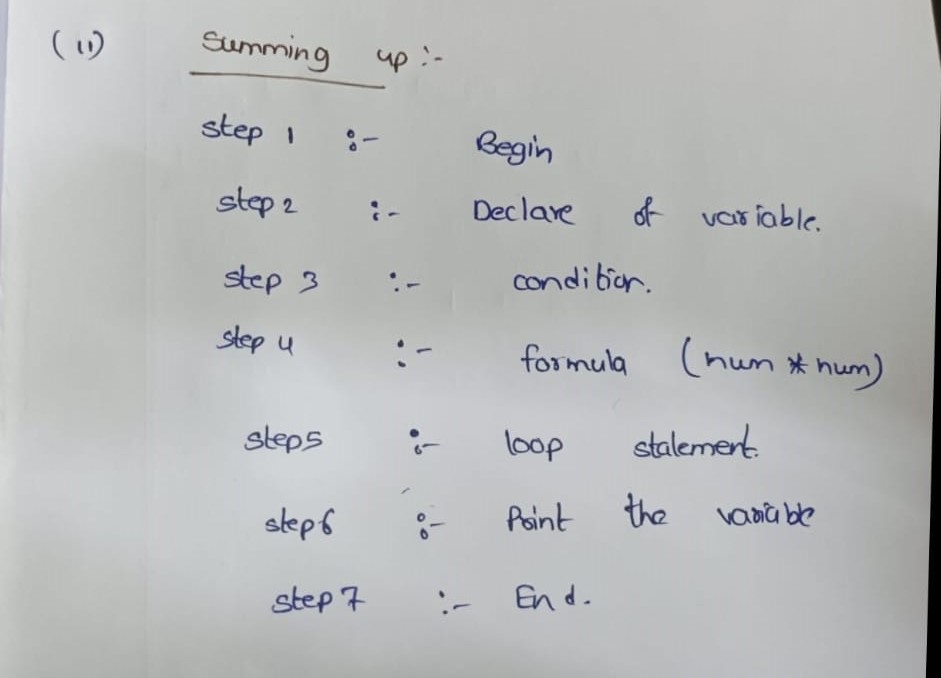 (11) Summing up :-
step 1 :- Begin
step 2 :- Declare of variable.
step 3 :- condition.
step 4 :- formula (num * num)
step5 :- loop statement.
step6 :- Print the variable
step 7 :- End.